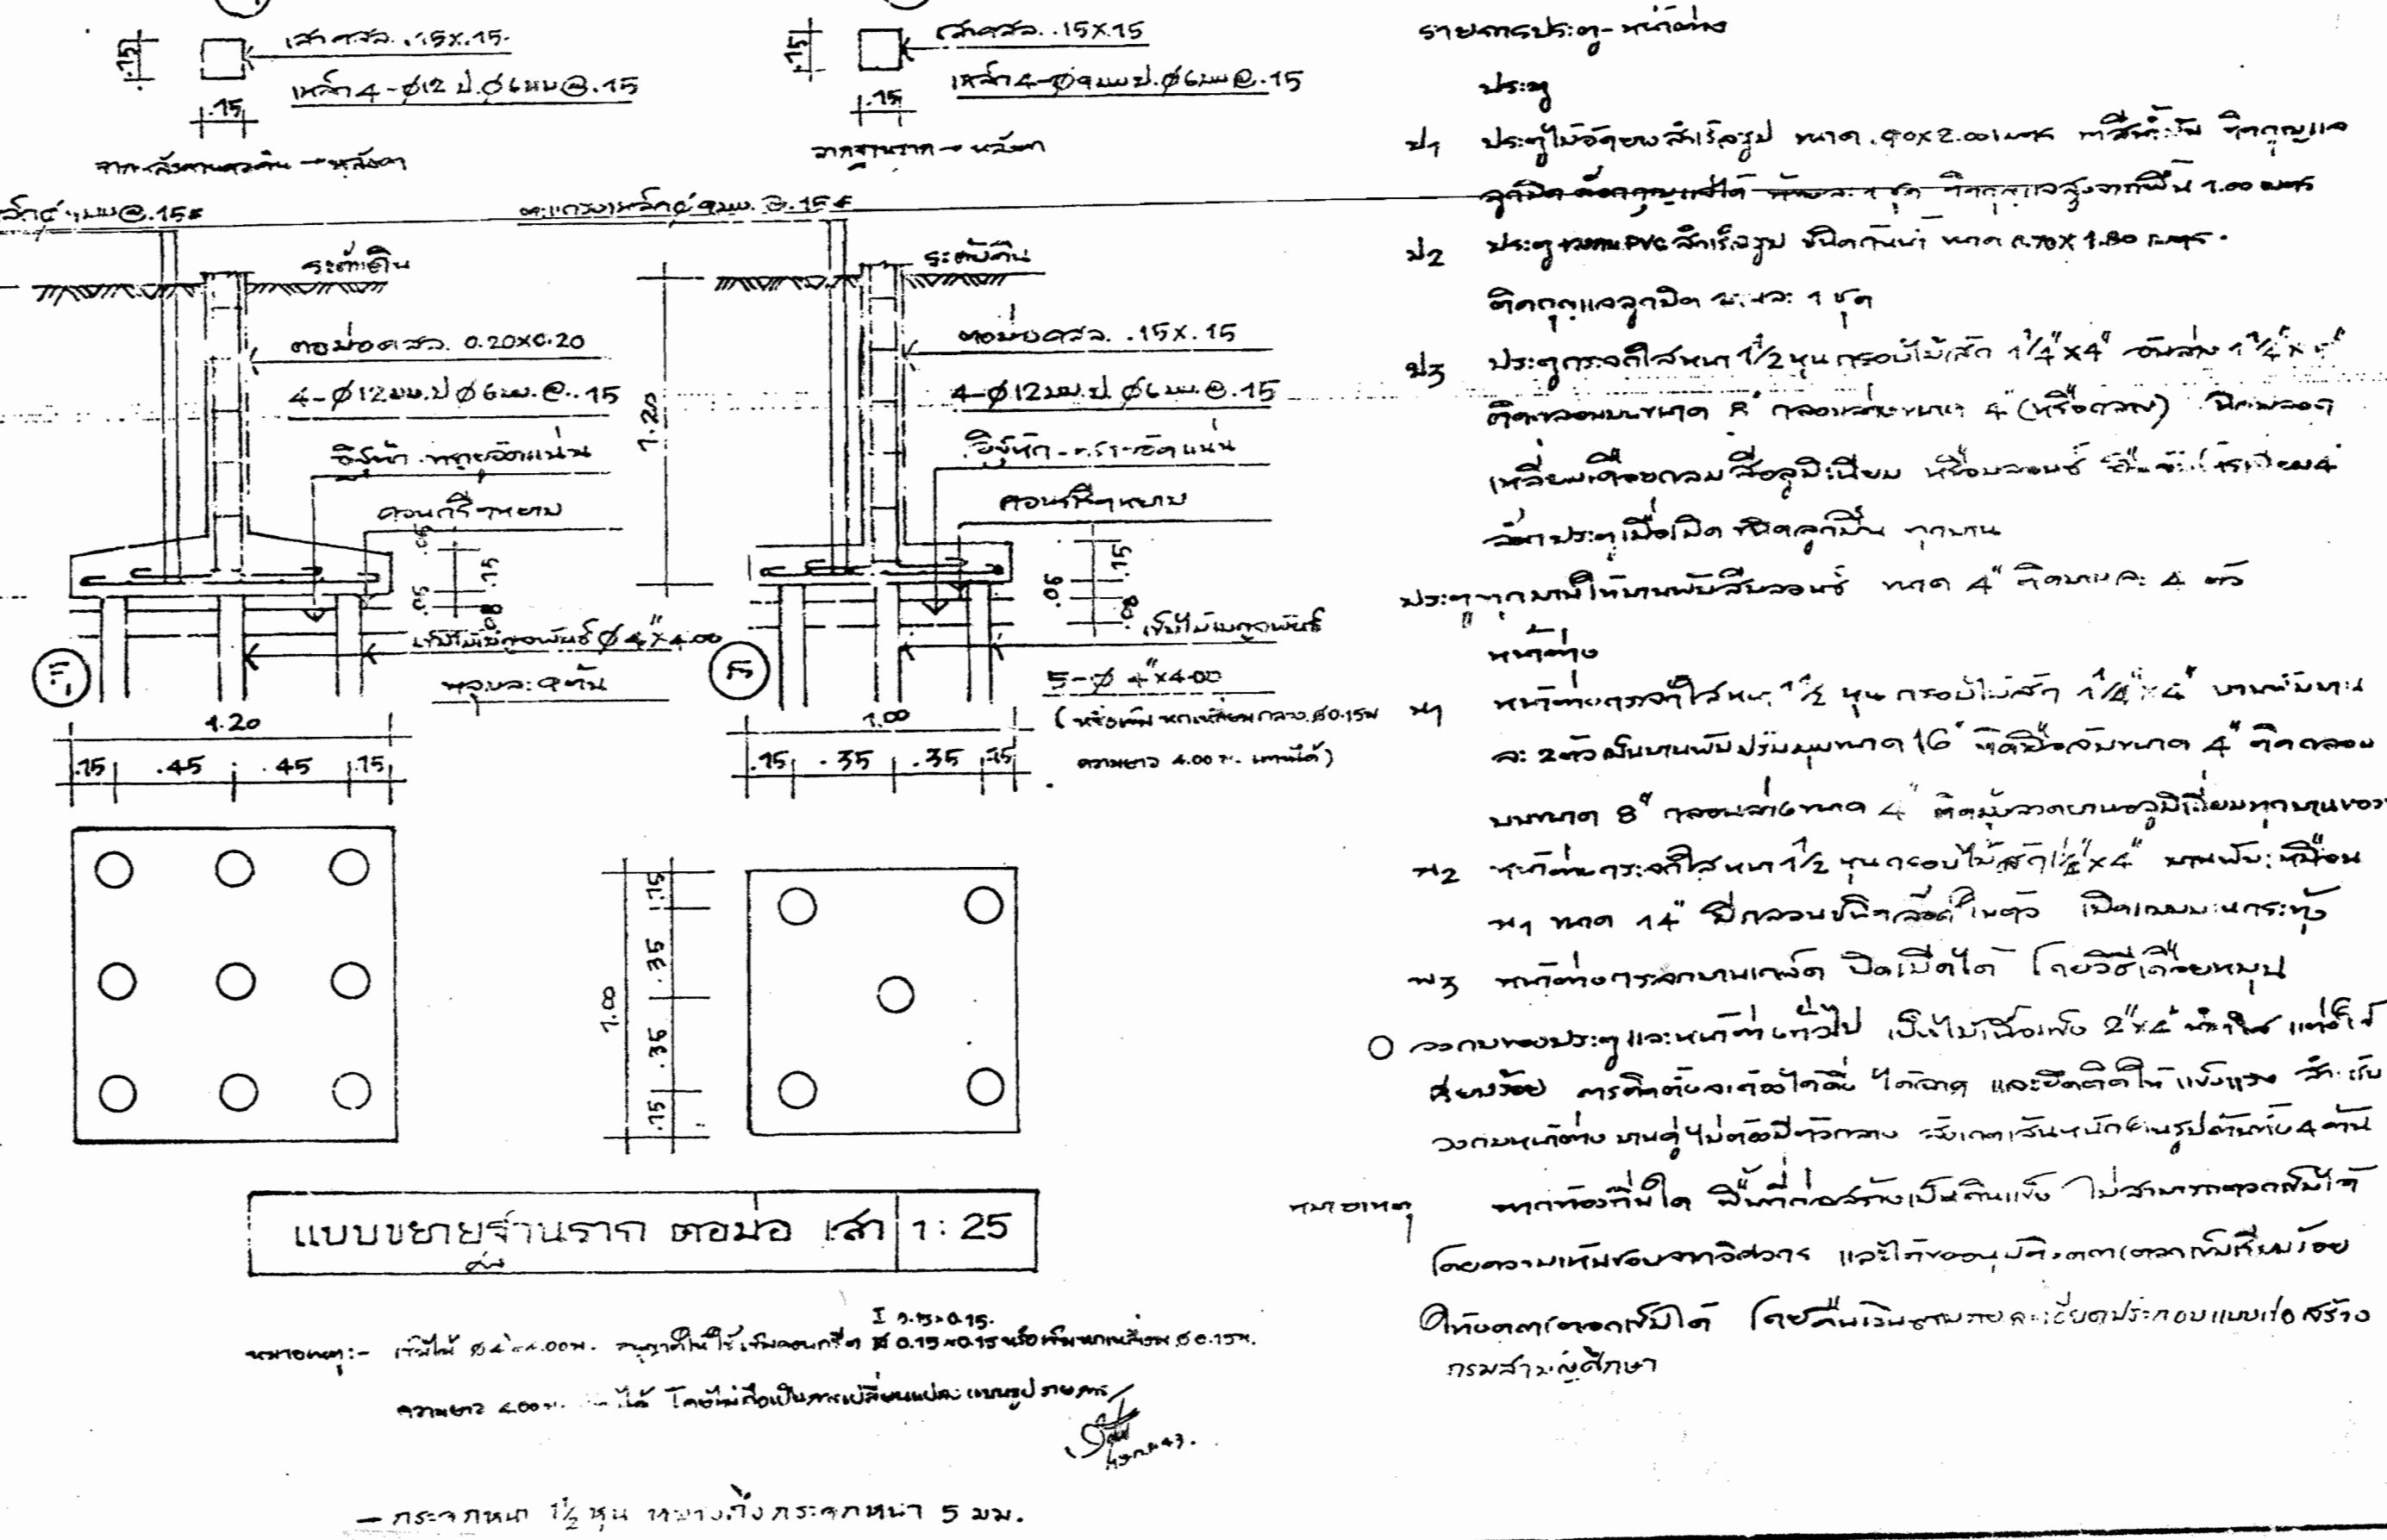 เสาคสล. .15X.15
เหล็ก 4-Ø12 ป.Ø6มม@.15
.15
.15
จากหลังคานคอดิน - หลังคา
เสาคสล. .15X.15
เหล็ก 4-Ø9มม ป.Ø6มม@.15
.15
.15
จากฐานราก - หลังคา
9มม@.15#
ตะแกรงเหล็ก Ø 9มม. @.15#
ระดับดิน
ตอม่อ คสล. 0.20X0.20
4-Ø12มม.ป Ø6มม.@.15
อิฐหัก ทรายอัดแน่น
คอนกรีตหยาบ
.05
.15
.05
.08
เข็มไม้เบญจพันธ์ Ø 4"X4.00
หลุมละ 9 ต้น
F1
1.20
.15 .45 .45 .15
ระดับดิน
1.20
ตอม่อ คสล. .15X.15
4-Ø12มม.ป Ø6มม.@.15
อิฐหัก-ทรายอัดแน่น
คอนกรีตหยาบ
.15
.05
.08
เข็มไม้เบญจพันธ์
5-Ø 4"X4.00
(หรือเข็มหกเหลี่ยมกลวง Ø0.15ม
ความยาว 4.00 ม. แทนได้)
F
1.00
.15 .35 .35 .15
1.00
.15 .35 .35 .15
แบบขยายฐานราก ตอม่อ เสา 1:25
หมายเหตุ:- เข็มไม้ Ø4"x4.00ม. อนุญาตให้ใช้เข็มคอนกรีต I 0.15x0.15 หรือเข็มหกเหลี่ยม Ø0.15ม.
ความยาว 4.00ม. ได้ โดยไม่ถือเป็นการเปลี่ยนแปลงแบบรูปรายการ
- กระจกหนา 1½ หุน หมายถึงกระจกหนา 5 มม.
รายการประตู-หน้าต่าง
ประตู
ป1 ประตูไม้อัดยางสำเร็จรูป ขนาด .90x2.00เมตร ทาสีน้ำมัน ติดกุญแจ
ลูกบิด ติดกุญแจสูงจากพื้น 1.00 เมตร
ป2 ประตู PVC สำเร็จรูป ชนิดกันน้ำ ขนาด 0.70X1.80 เมตร.
ติดกุญแจลูกบิด บานละ 1 ชุด
ป3 ประตูกระจกใสหนา 1½ หุน กรอบไม้สัก 1¼"X4" อันล่าง 1¼"x
ติดกลอนบนขนาด 8" กลอนล่างขนาด 4"
เหลี่ยม สีอลูมิเนียม
ประตูเมื่อเปิด ทุกบาน
ประตูทุกบานใช้บานพับสีบลอนซ์ ขนาด 4" ติดบานละ 4 ตัว
หน้าต่าง
น1 หน้าต่างกระจกใสหนา 1½ หุน กรอบไม้สัก 1¼"x4" บานพับบาน
ละ 2ตัว เป็นบานพับปรับมุมขนาด 16" ติดมือจับขนาด 4" ติดกลอน
บนขนาด 8" กลอนล่างขนาด 4" ติดมุ้งลวดบานอลูมิเนียมทุกบาน
น2 หน้าต่างกระจกใสหนา 1½ หุน กรอบไม้สัก 1¼"x4" บานพับเหมือน
น1 ขนาด 14" มีกลอนชนิดล็อคในตัว เปิดแบบบานกระทุ้ง
น3 หน้าต่างกระจกบานเกล็ด ปิดเปิดได้ โดยวิธีเดือยหมุน
○ วงกบของประตูและหน้าต่างทั่วไป เป็นไม้เนื้อแข็ง 2"x4"
เรียบร้อย การติดตั้งจะต้องได้ดิ่ง ได้ฉาก และยึดติดให้แข็งแรง สำหรับ
วงกบหน้าต่าง บานคู่ไม่ต้องมีตัวกลาง 4 ด้าน
หมายเหตุ หากท้องถิ่นใด พื้นที่ก่อสร้างเป็นดินแข็ง ไม่สามารถตอกเข็มได้
โดยความเห็นชอบจากวิศวกร และได้ขออนุมัติงดการตอกเข็มเรียบร้อย
ให้งดการตอกเข็มได้ โดยคืนเงินตามรายละเอียดประกอบแบบก่อสร้าง
กรมสามัญศึกษา